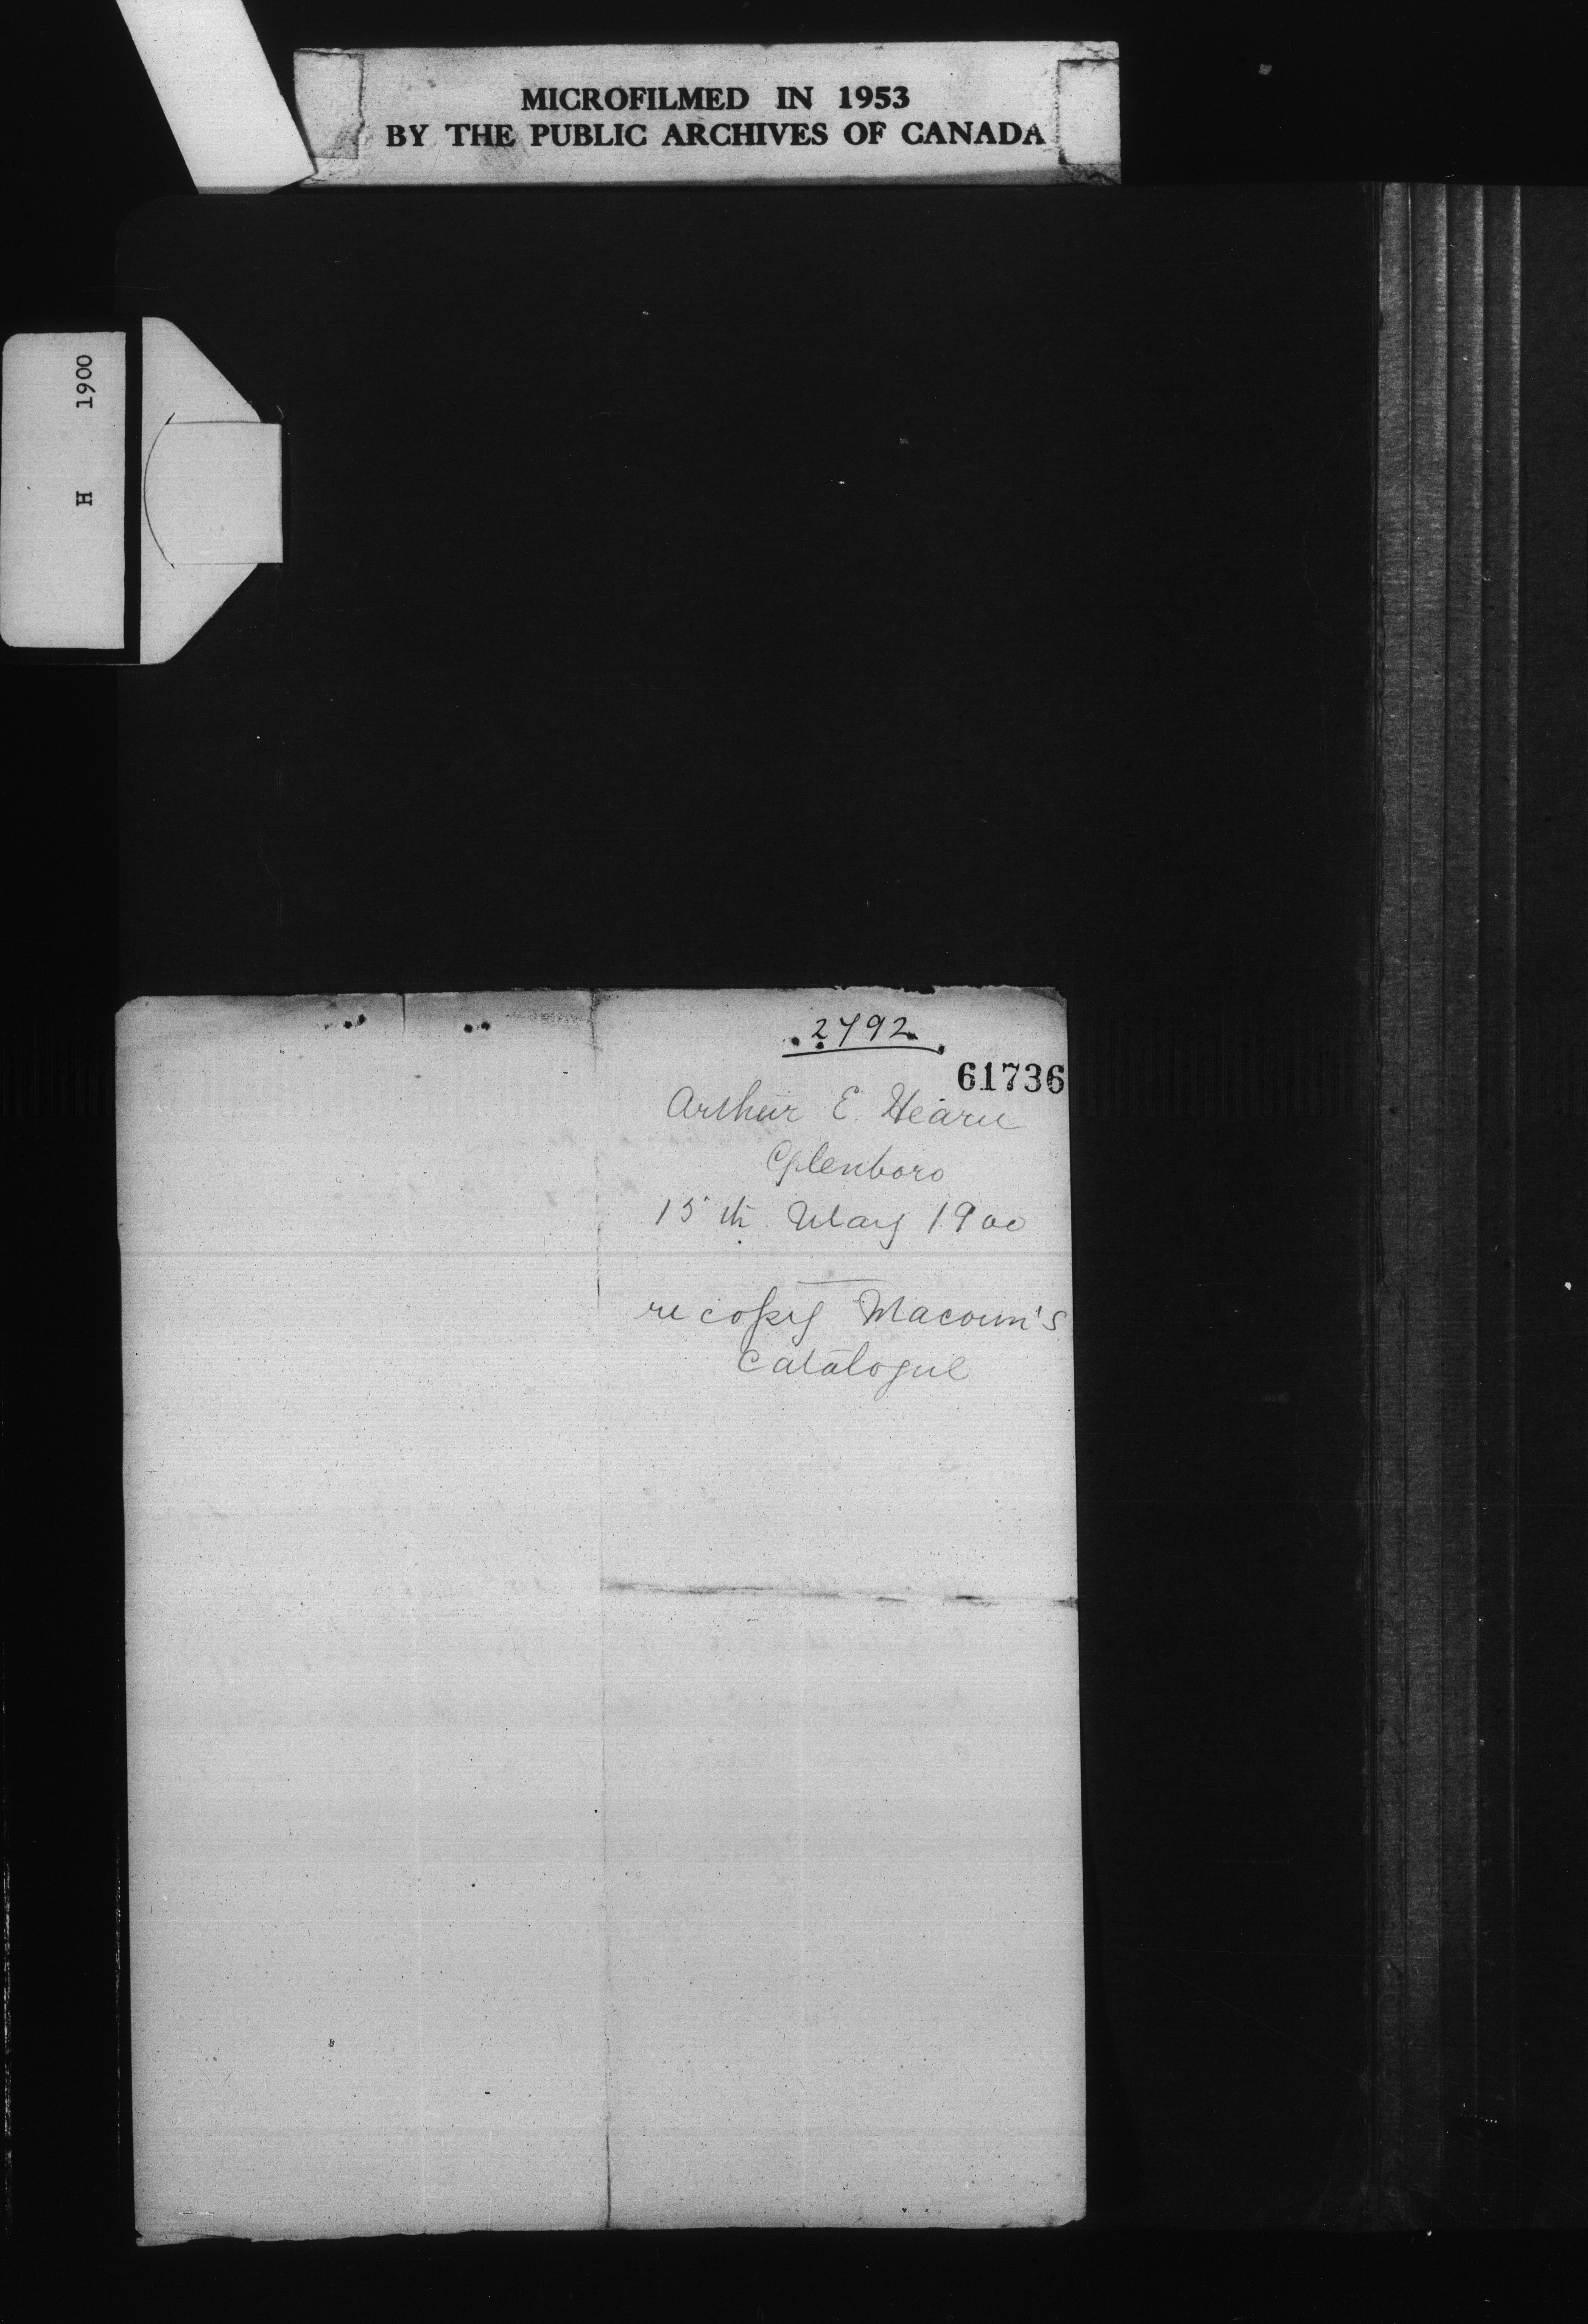 MICROFILMED IN 1953
BY THE PUBLIC ARCHIVES OF CANADA
H 1900
2792
61736
Arthur E. Hearn
Glenboro
15th May 1900
re copy Macoun's
Catalogue